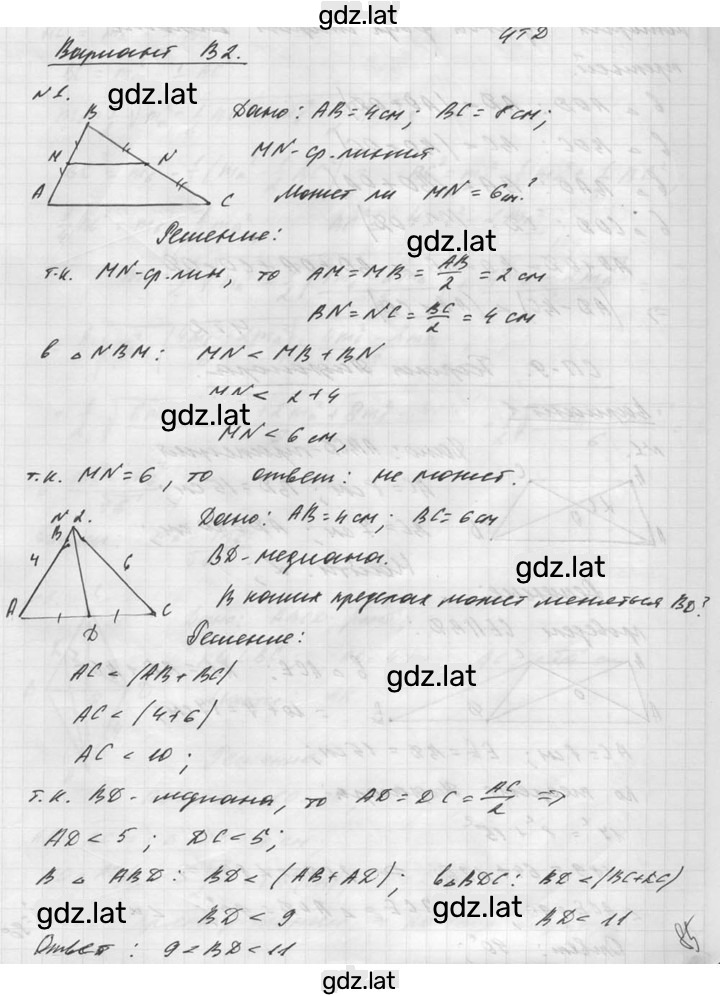 gdz.lat
ЧТД
Вариант В2.
№1.
gdz.lat
Дано: AB=4см; BC=8см;
MN-ср.линия
Может ли MN=6см?
B
M
N
A
C
Решение:
gdz.lat
т.к. MN-ср.лин, то AM=MB=AB/2=2см
BN=NC=BC/2=4см
в △NBM: MN<MB+BN
MN<2+4
gdz.lat
MN<6см,
т.к. MN=6, то ответ: не может.
№2.
Дано: AB=4см; BC=6см
BD-медиана.
gdz.lat
В каких пределах может меняться BD?
B
4
6
A
D
C
Решение:
AC<(AB+BC)
gdz.lat
AC<(4+6)
AC<10;
т.к. BD-медиана, то AD=DC=AC/2 =>
AD<5; DC<5;
В △ABD: BD<(AB+AD); в△BDC: BD<(BC+DC)
gdz.lat
BD<9
gdz.lat
BD<11
Ответ: 9<BD<11
85
gdz.lat